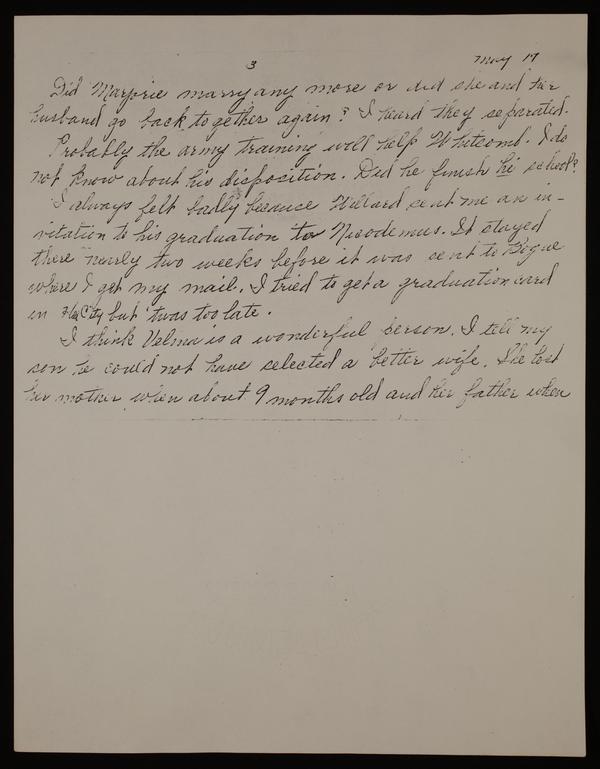 3 May 17
Did Marjorie marry any more or did she and her
husband go back together again? I heard they separated.
Probably the army training will help Whitcomb. I do
not know about his disposition. Did he finish hi school?
I always felt badly because Willard sent me an in-
vitation to his graduation to Nicodemus. It stayed
there nearly two weeks before it was sent to Bogue
where I get my mail. I tried to get a graduation card
in Hill City but 'twas too late.
I think Velma is a wonderful person. I tell my
son he could not have selected a better wife. She lost
her mother when about 9 months old and her father when